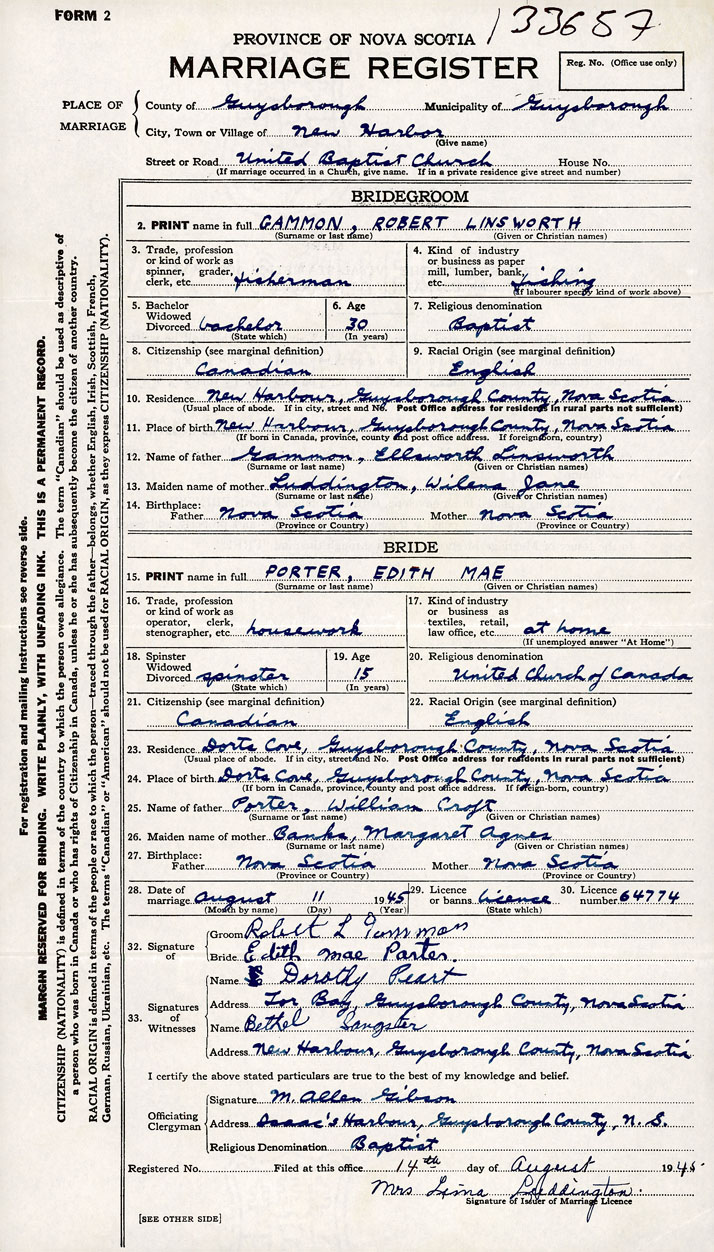 FORM 2
133657
PROVINCE OF NOVA SCOTIA
MARRIAGE REGISTER
Reg. No. (Office use only)
PLACE OF MARRIAGE
County of Guysborough Municipality of Guysborough
City, Town or Village of New Harbor
(Give name)
Street or Road United Baptist Church House No.
(If marriage occurred in a Church, give name. If in a private residence give street and number)
BRIDEGROOM
2. PRINT name in full GAMMON, ROBERT LINSWORTH
(Surname or last name) (Given or Christian names)
3. Trade, profession or kind of work as spinner, grader, clerk, etc. fisherman
4. Kind of industry or business as paper mill, lumber, bank, etc. fishing
(If labourer specify kind of work above)
5. Bachelor Widowed Divorced bachelor
(State which)
6. Age 30
(In years)
7. Religious denomination
Baptist
8. Citizenship (see marginal definition)
Canadian
9. Racial Origin (see marginal definition)
English
10. Residence New Harbour, Guysborough County, Nova Scotia
(Usual place of abode. If in city, street and No. Post Office address for residents in rural parts not sufficient)
11. Place of birth New Harbour, Guysborough County, Nova Scotia
(If born in Canada, province, county and post office address. If foreign-born, country)
12. Name of father Gammon, Ellsworth Linsworth
(Surname or last name) (Given or Christian names)
13. Maiden name of mother Luddington, Wilena Jane
(Surname or last name) (Given or Christian names)
14. Birthplace: Father Nova Scotia Mother Nova Scotia
(Province or Country) (Province or Country)
BRIDE
15. PRINT name in full PORTER, EDITH MAE
(Surname or last name) (Given or Christian names)
16. Trade, profession or kind of work as operator, clerk, stenographer, etc. housework
17. Kind of industry or business as textiles, retail, law office, etc. at home
(If unemployed answer "At Home")
18. Spinster Widowed Divorced spinster
(State which)
19. Age 15
(In years)
20. Religious denomination
United Church of Canada
21. Citizenship (see marginal definition)
Canadian
22. Racial Origin (see marginal definition)
English
23. Residence Dorts Cove, Guysborough County, Nova Scotia
(Usual place of abode. If in city, street and No. Post Office address for residents in rural parts not sufficient)
24. Place of birth Dorts Cove, Guysborough County, Nova Scotia
(If born in Canada, province, county and post office address. If foreign-born, country)
25. Name of father Porter, William Croft
(Surname or last name) (Given or Christian names)
26. Maiden name of mother Banks, Margaret Agnes
(Surname or last name) (Given or Christian names)
27. Birthplace: Father Nova Scotia Mother Nova Scotia
(Province or Country) (Province or Country)
28. Date of marriage August 11 1945
(Month by name) (Day) (Year)
29. Licence or banns licence
(State which)
30. Licence number 64774
32. Signature of
Groom Robert L Gammon
Bride Edith Mae Porter.
33. Signatures of Witnesses
Name Dorothy Peart
Address Tor Bay, Guysborough County, Nova Scotia
Name Bethel Sangster
Address New Harbour, Guysborough County, Nova Scotia
I certify the above stated particulars are true to the best of my knowledge and belief.
Officiating Clergyman
Signature M. Allen Gibson
Address Isaac's Harbour, Guysborough County, N. S.
Religious Denomination Baptist
Registered No. Filed at this office 14th day of August 1945
Mrs Lima Luddington.
Signature of Issuer of Marriage Licence
[SEE OTHER SIDE]
For registration and mailing instructions see reverse side.
MARGIN RESERVED FOR BINDING. WRITE PLAINLY, WITH UNFADING INK. THIS IS A PERMANENT RECORD.
CITIZENSHIP (NATIONALITY) is defined in terms of the country to which the person owes allegiance. The term "Canadian" should be used as descriptive of
a person who was born in Canada or who has rights of Citizenship in Canada, unless he or she has subsequently become the citizen of another country.
RACIAL ORIGIN is defined in terms of the people or race to which the person—traced through the father—belongs, whether English, Irish, Scottish, French,
German, Russian, Ukrainian, etc. The terms "Canadian" or "American" should not be used for RACIAL ORIGIN, as they express CITIZENSHIP (NATIONALITY).